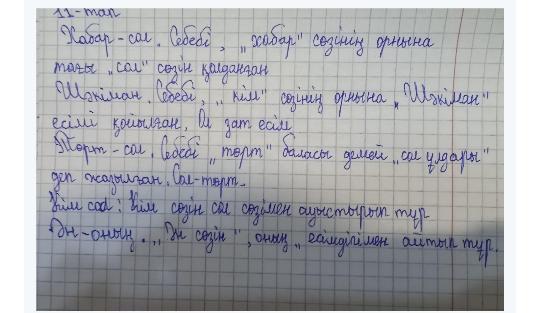 11-тап
Хабар-сол. Себебі, „хабар" сөзінің орнына
тағы „сол" сөзін қолданған
Шәкіман. Себебі, „кім" сөзінің орнына „Шәкіман"
есімі қойылған. Ол зат есім
Төрт-сол. Себебі „төрт" баласы демей „сол ұлдары"
деп жазылған. Сол-төрт.
Кім сол: Кім сөзін сол сөзімен ауыстырып тұр
Ән-оның. „Ән сөзін", оның „ есімдігімен айтып тұр.